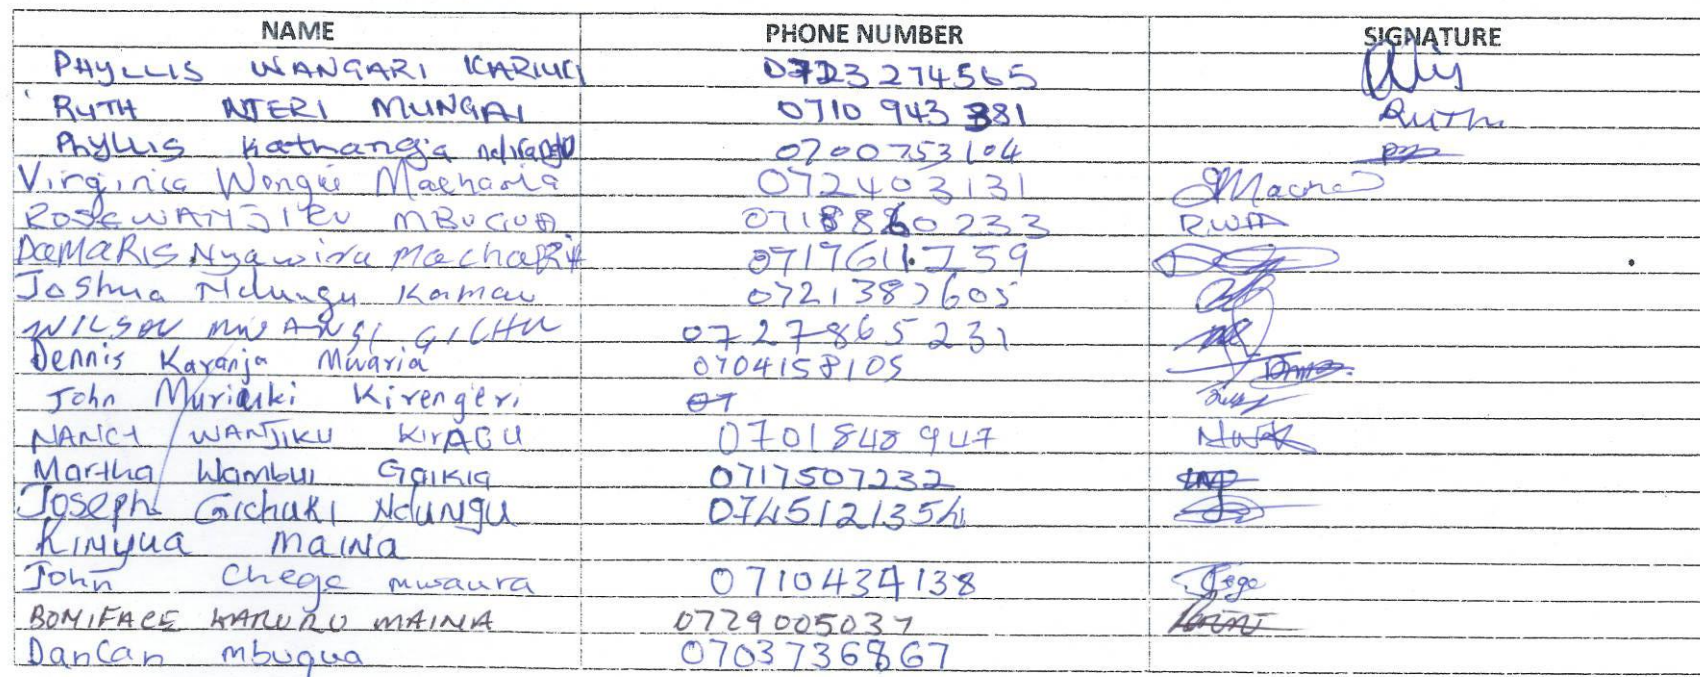 NAME PHONE NUMBER SIGNATURE
PHYLLIS WANGARI KARIUKI 0723274565
RUTH NJERI MUNGAI 0710 943 381 RUTH
Phyllis Kathanga ndirangu 0700753104
Virginia Wangui Macharia 072403131
ROSE WANJIRU MBUGUA 0718860233 RWM
DaMARIS Nyawira MachaRIA 0717611759
Joshua Ndungu Kamau 0721387605
WILSON MWANGI GICHU 0727865231
Dennis Karanja Mwaria 0704158105
John Muriuki Kirengeri 07
NANCY WANJIKU KIRAGU 0701848947
Martha Wambui Gaikia 0717507232
Joseph Gichuki Ndungu 0745121354
Kinyua Maina
John Chege mwaura 0710434138
BONIFACE KARURU MAINA 0729005037
DanCan mbugua 0703736867